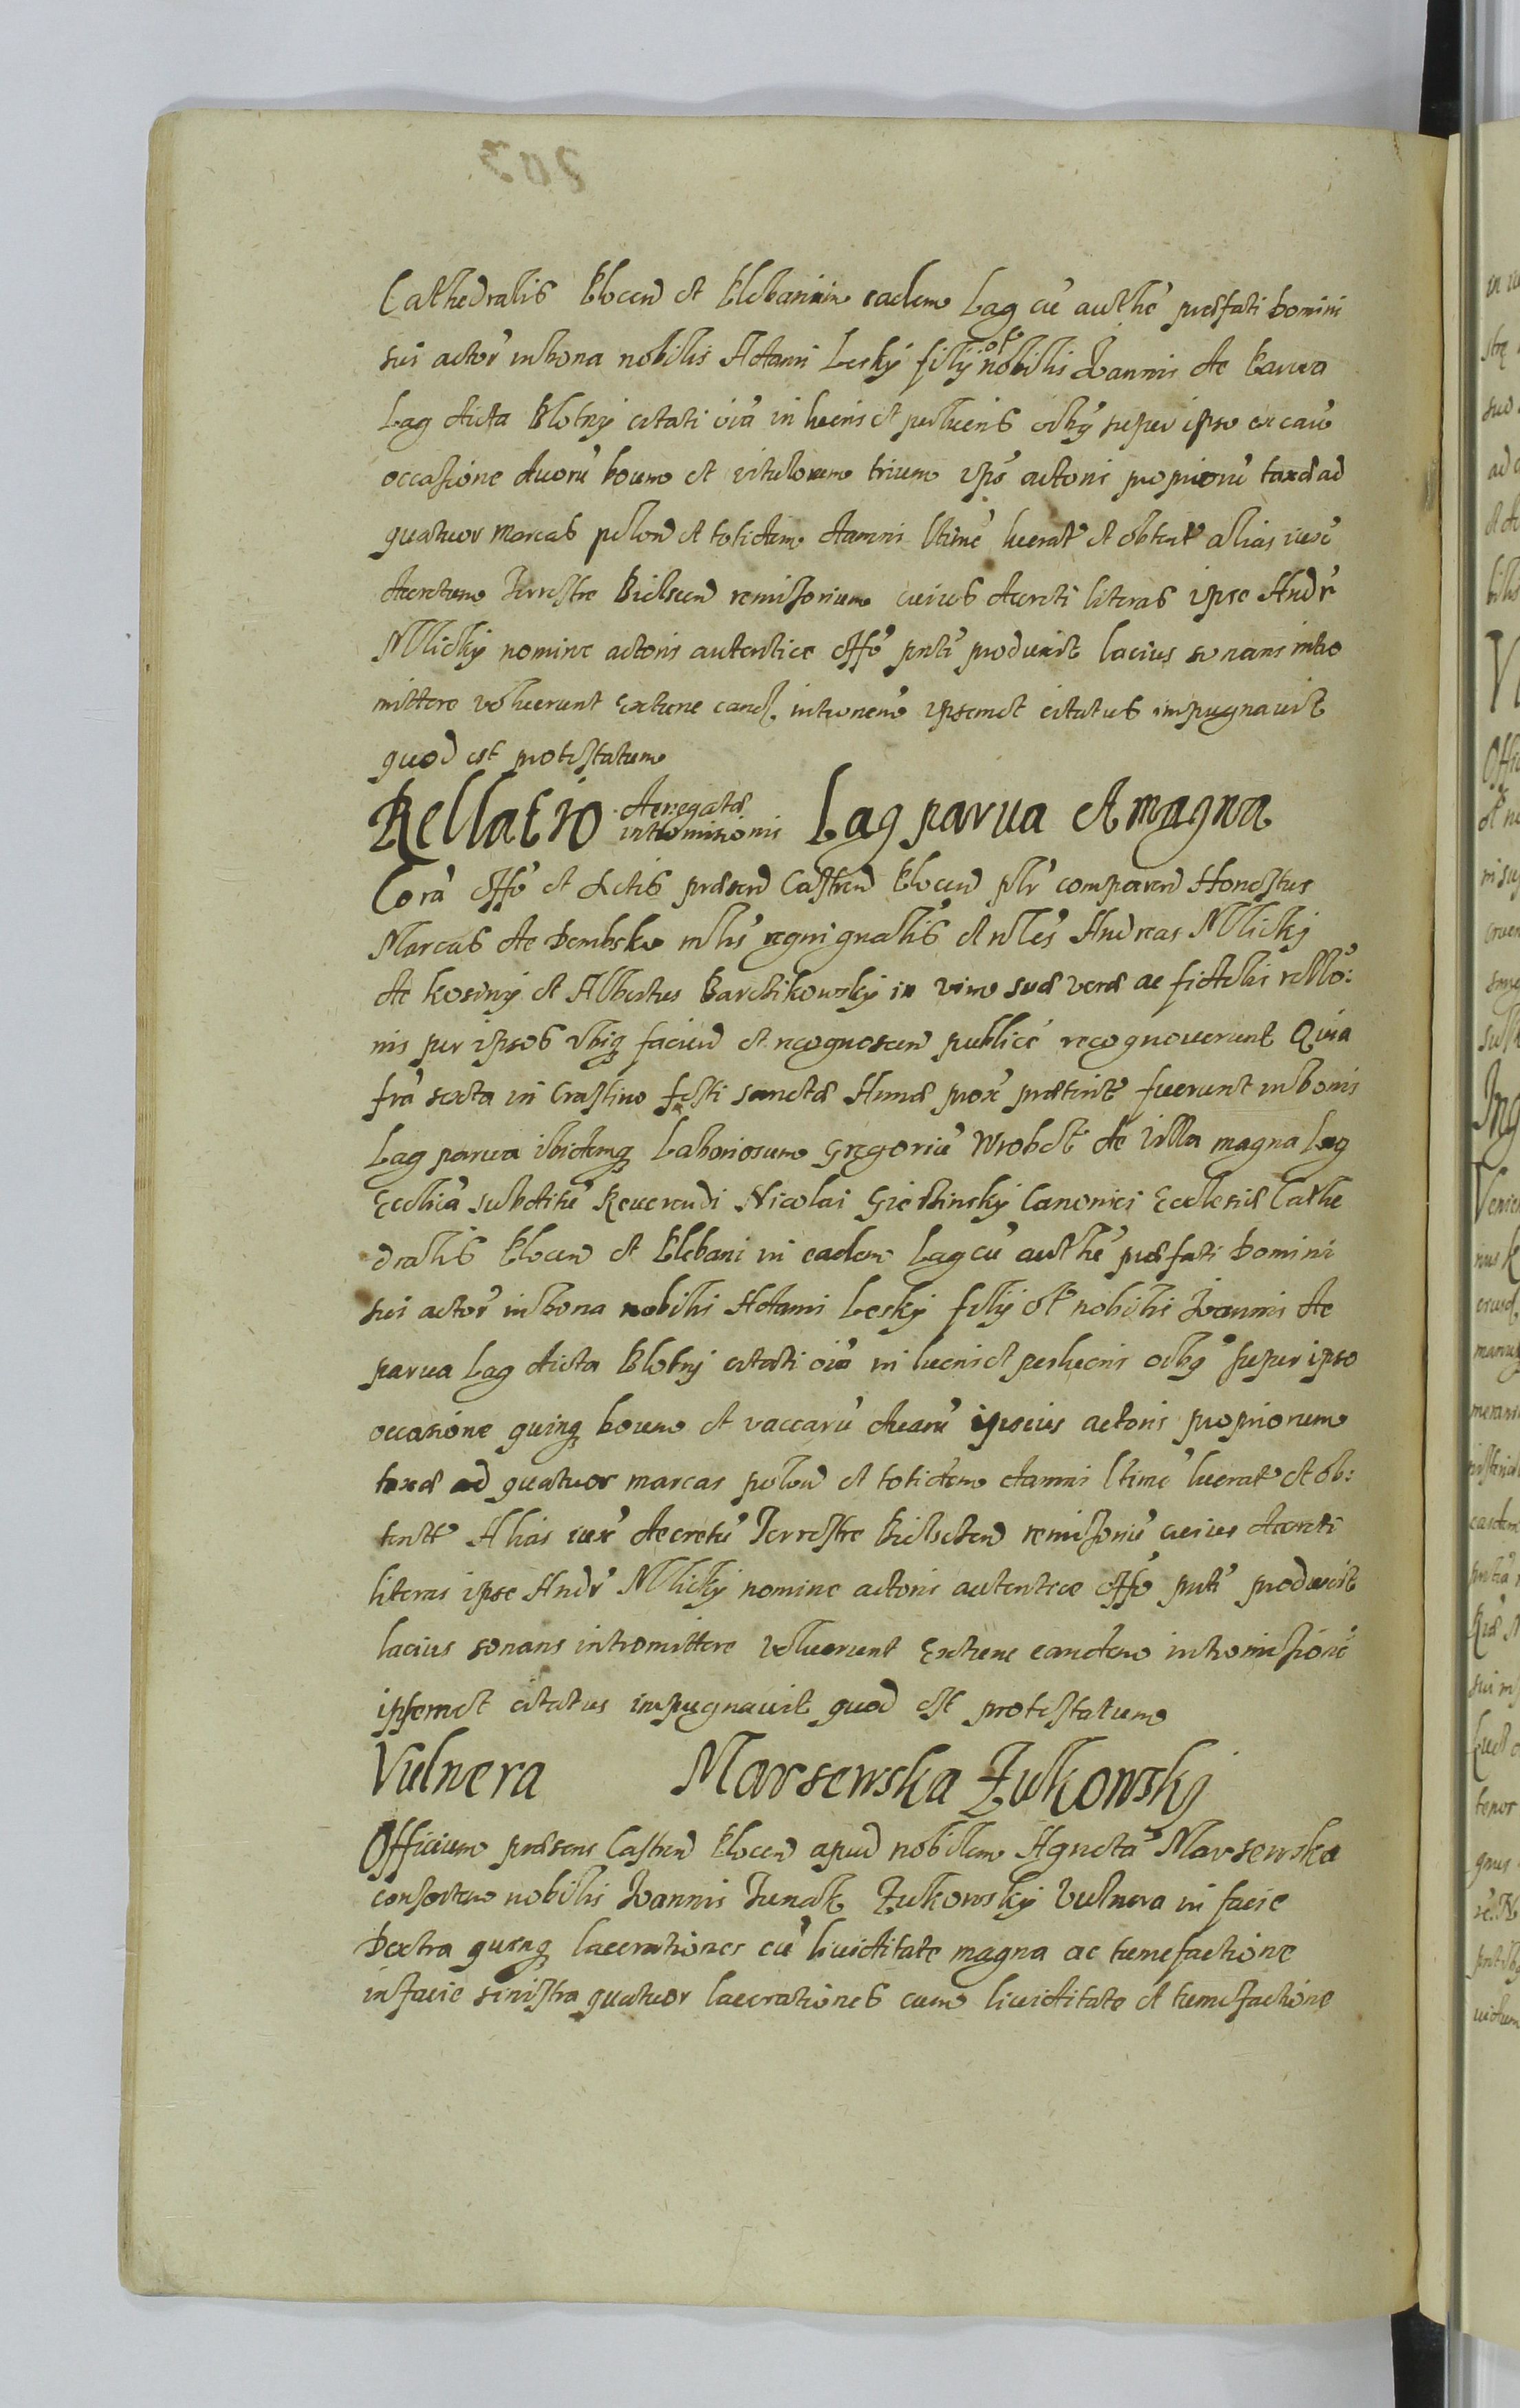 Cathedralis Plocen et Plebani in eadem Lag cu authe præfati Domini
sui actor in bona nobilis Adami Lesky filij olim nobilis Joannis de Parva
Lag dicta Blotny citati oia in lucris et perlucris oibq super ipso ex caus
occasione duoru boum et vitulorum trium ips actoris proprioru taxæ ad
quatuor marcas polon et totidem damni ltime lucrat et obtent alias iuxe
decretum Terrestre Bielscen remissorium cuius decreti literas ipse Andr
Mlicky nomine actoris autentice offo pnti produxit lacius sonans intro
mittere voluerunt Extunc eand intronem ipsemet citatus impugnavit
quod est protestatum
Rellatio denegatæ intromissionis Lag parva et magna
Cora offo et Actis præsen Castren Plocen plr comparen Honestus
Marcus de Dembsko mlis regni gnalis et nles Andreas Mlicky
de kosiny et Albertus Barcikowsky in vim suæ veræ ac fidelis rello:
nis per ipsos ubiq facien et recognoscen publice recognoverunt Quia
fra sexta in Crastino festi sanctæ Annæ prox præterit fuerunt in bonis
Lag parva ibidemq Laboriosum Gregoriu Wrobel de villa magna Lag
Ecclia subditu Reverendi Nicolai Cathe
dralis Plocen et Plebani in eadem Lag cu authe præfati Domini
sui actor in bona nobilis Adami Lesky filij ol nobilis Joannis de
parva Lag dicta Blotny citati oia in lucris et perlucris oibq super ipso
occasione quinq boum et vaccaru duaru ipsius actoris propriorum
taxæ ad quatuor marcas polon et totidem damni ltime lucrat et ob:
tent Alias iux decretu Terrestre Bielscen remissoriu cuius decreti
literas ipse Andr Mlicky nomine actoris autentece offo pnti produxit
lacius sonans intromittere voluerunt Extunc eandem intromissione
ipsemet citatus impugnavit quod est protestatum
Vulnera Marsewska Zukowskj
Officium præsens Castren Plocen apud nobilem Agneta Marsewska
consortem nobilis Joannis Junak Zukowsky vulnera in facie
Dextra quinq lacerationes cu lividitate magna ac tumefactione
in facie sinistra quatuor lacerationes cum lividitate et tumefactione